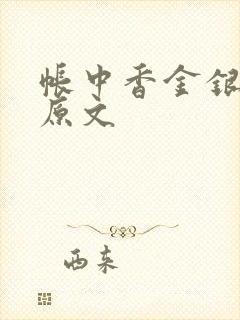 帐中香金银
原文
西东